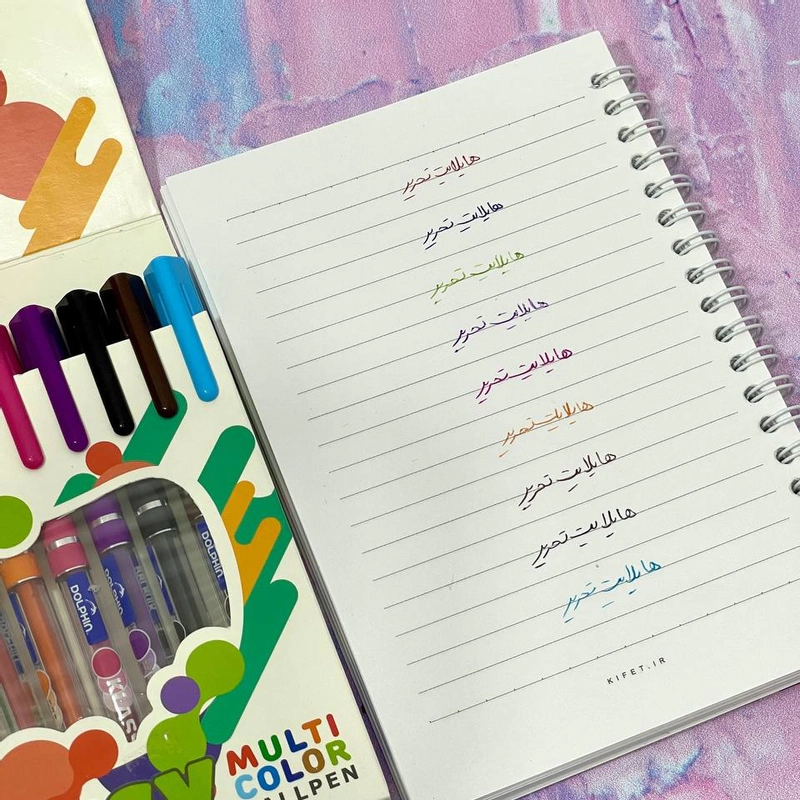 هایلایت تحریر
هایلایت تحریر
هایلایت تحریر
هایلایت تحریر
هایلایت تحریر
هایلایت تحریر
هایلایت تحریر
هایلایت تحریر
هایلایت تحریر
KIFET.IR
DOLPHIN
DOLPHIN
DOLPHIN
MULTI
COLOR
LLPEN